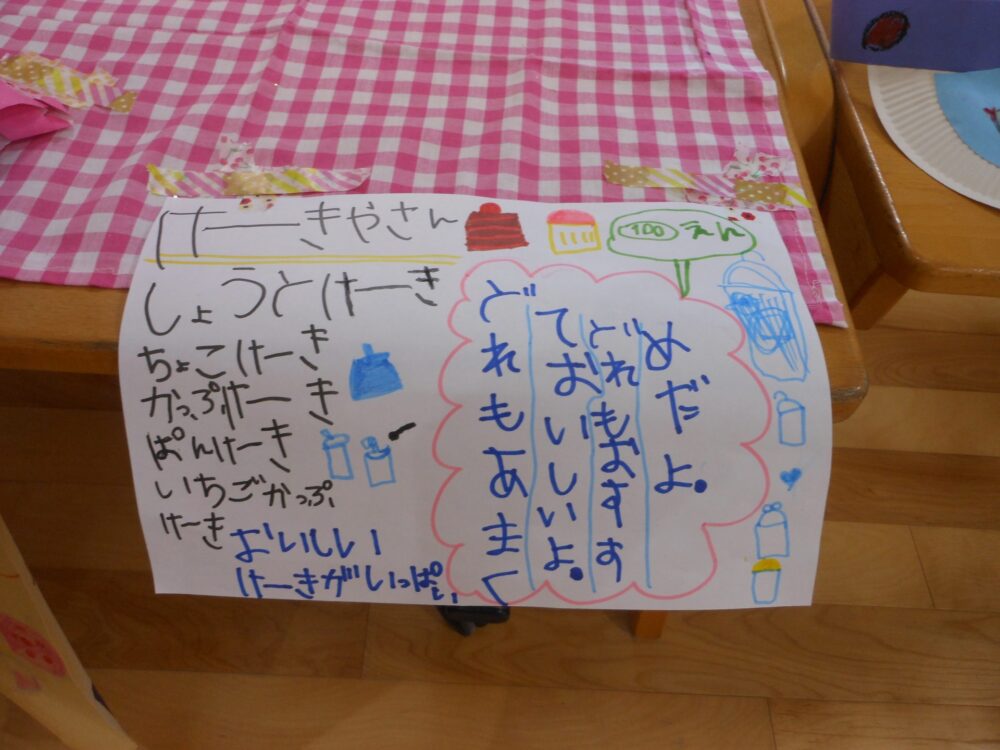 けーきやさん
100えん
しょうとけーき
ちょこけーき
かっぷけーき
ぱんけーき
いちごかっぷ
けーき
おいしい
けーきがいっぱい
どれもあまく
ておいしいよ。
どれもおすす
めだよ。